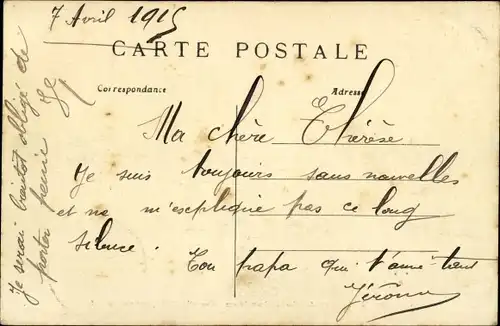 7 Avril 1915
CARTE POSTALE
Correspondance
Adresse
Ma chère Thérèse
Je suis toujours sans nouvelles
et ne m'explique pas ce long
silence.
Ton papa qui t'aime tant
Jérôme
Je serai bientôt obligé de
porter peine Je